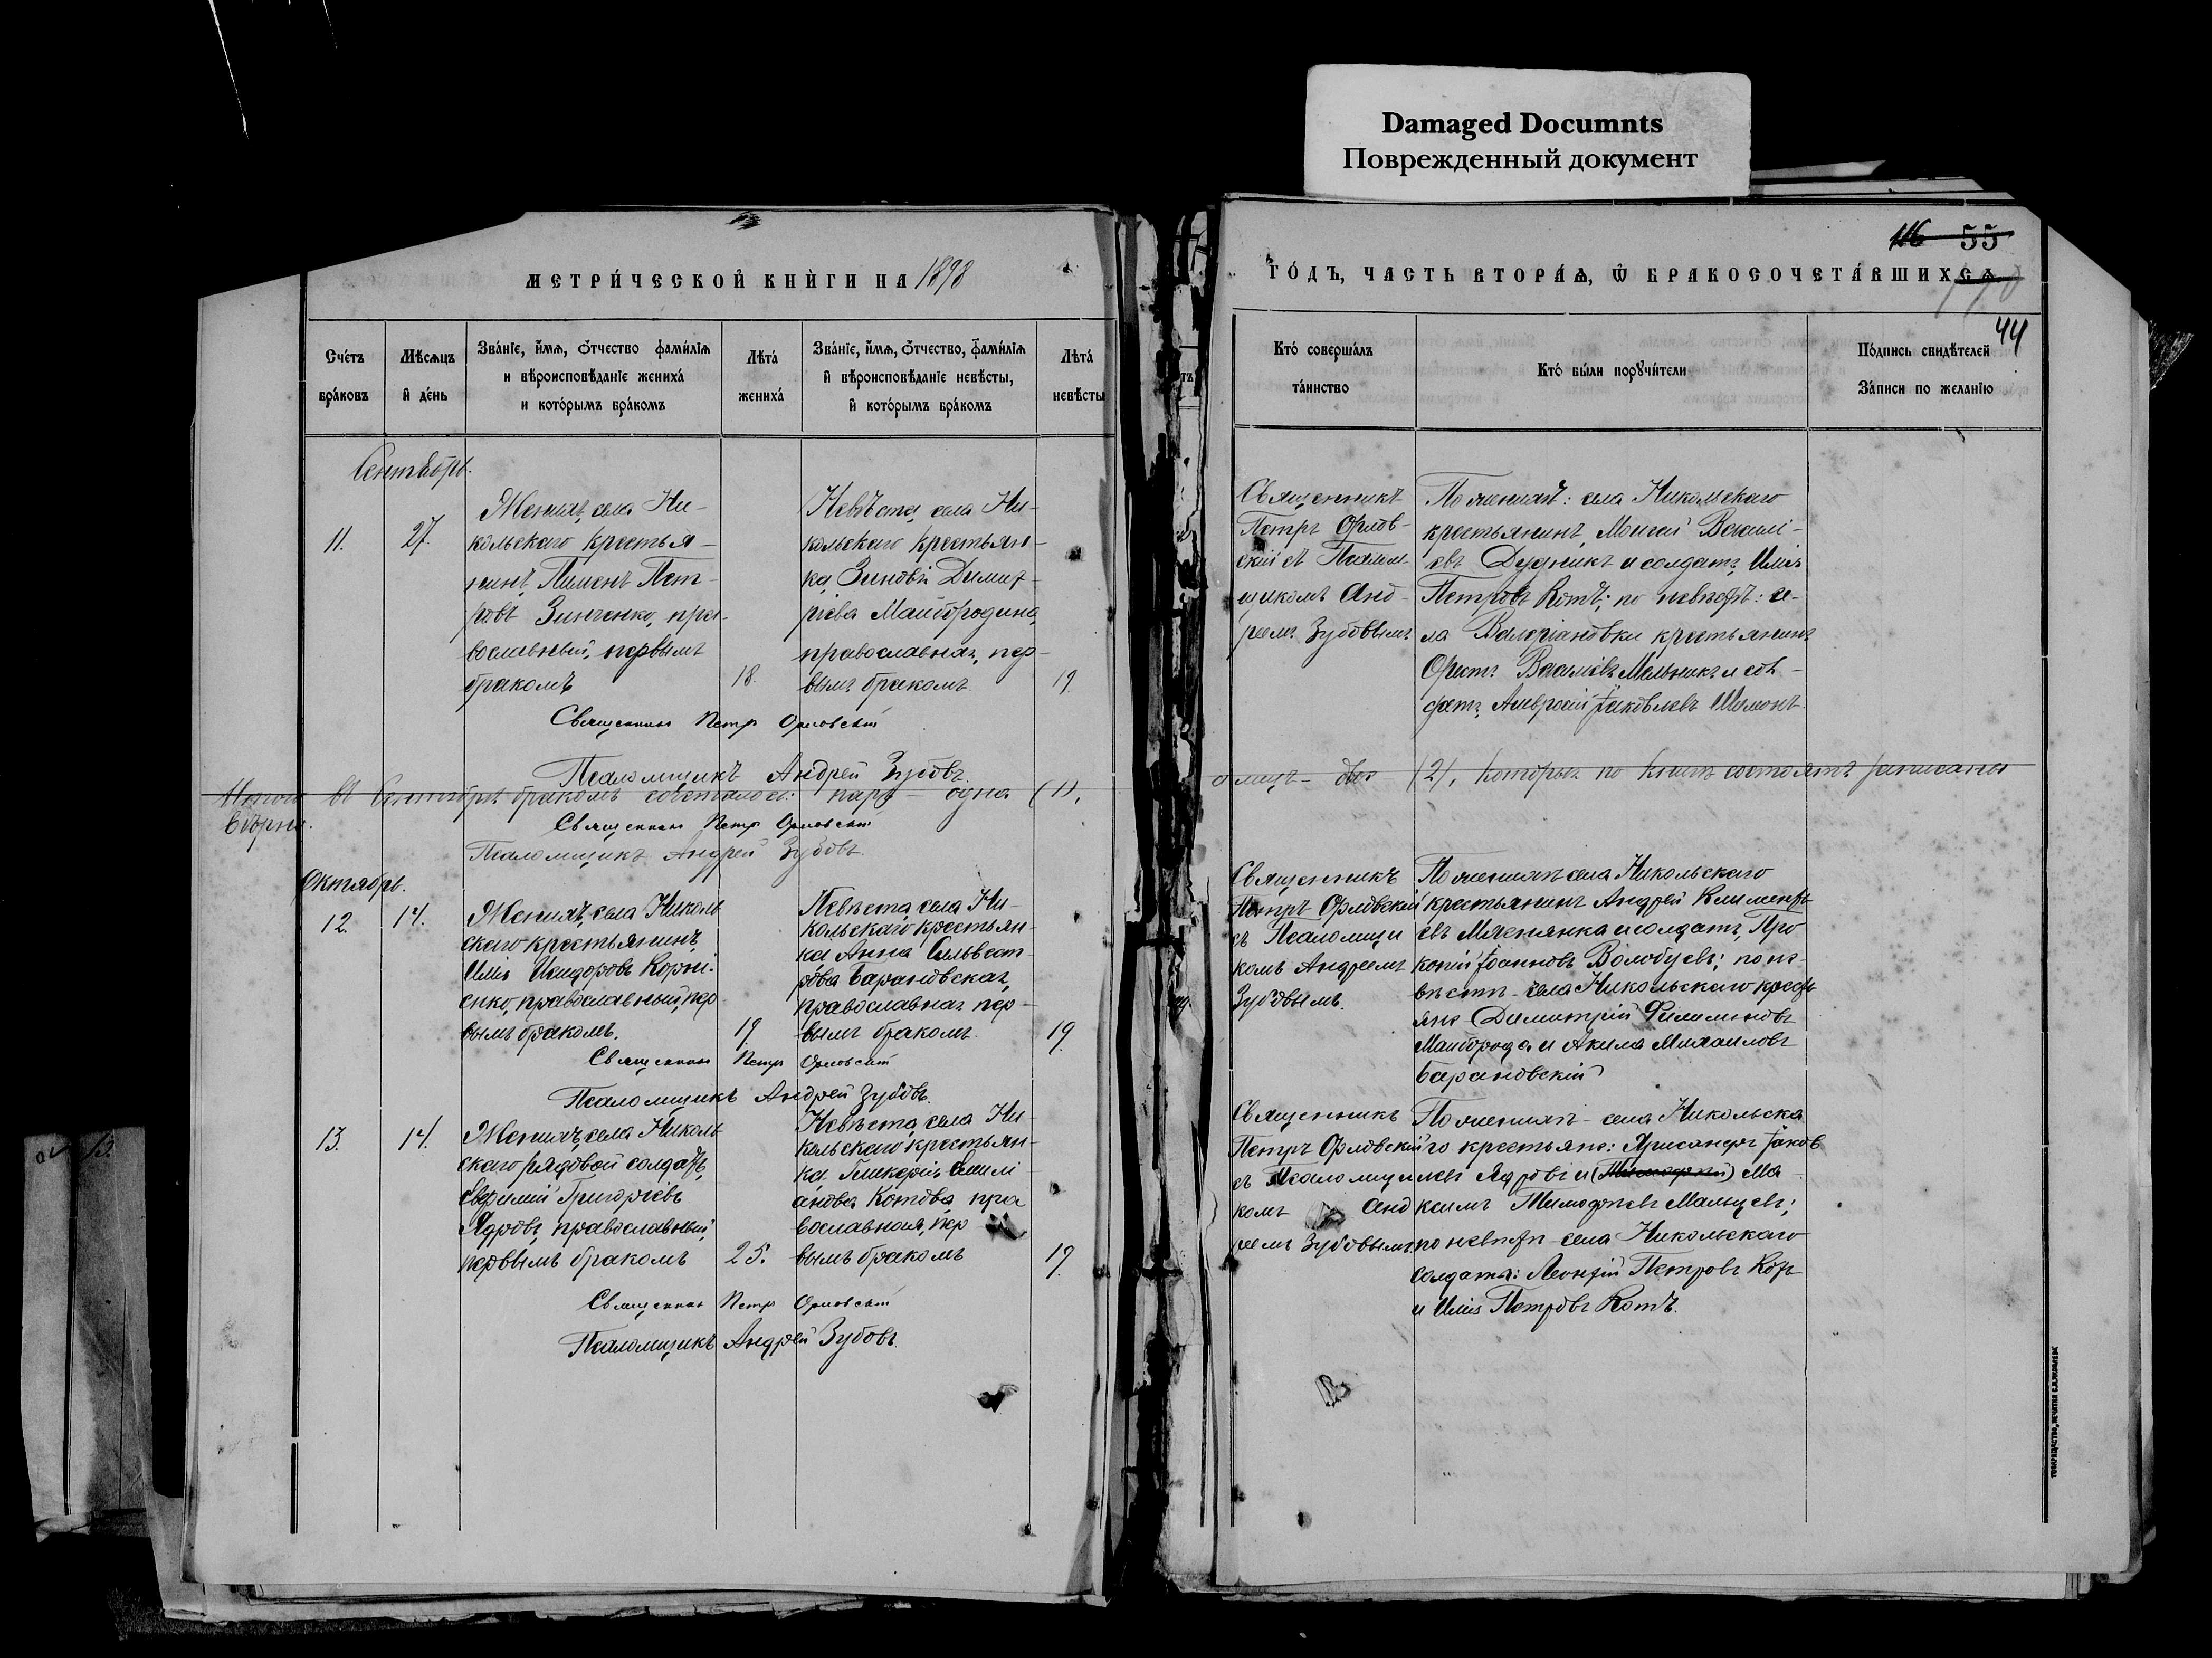 Damaged Documnts
Поврежденный документ
116 55
МЕТРИ́ЧЕСКОЙ КНИ́ГИ НА 1898
ГО́ДЪ, ЧАСТЬ ВТОРА́Ѧ, Ѿ БРАКОСОЧЕТА́ВШИХСѦ
44
Сче́тъ бра́ковъ
Мѣ́сѧцъ и҆ де́нь
Зва́нїе, и҆́мѧ, ѻ҆́тчество фами́лїѧ и вѣроисповѣ́данїе жениха́ и кото́рымъ бра́комъ
Лѣта́ жениха́
Зва́нїе, и҆́мѧ, ѻ҆́тчество, фами́лїѧ и҆ вѣроисповѣ́данїе невѣ́сты, и҆ кото́рымъ бра́комъ
Лѣта́ невѣ́сты
Кто́ соверша́лъ та́инство
Кто́ бы́ли порꙋчи́тели
По́дпись свидѣ́телей За́писи по жела́нїю
Сентябрь.
11.
27.
Женихъ, села Ни-
кольскаго крестья-
нинъ, Пименъ Пет-
ровъ Зинченко, пра-
вославный, первымъ
бракомъ
18.
Невѣста, села Ни-
кольскаго крестьян-
ка, Зиновія Димит-
ріева Майбородина,
православная, пер-
вымъ бракомъ
19.
Священникъ
Петръ Орлов-
скій съ Псалом-
щикомъ Анд-
реемъ Зубовымъ
По женихѣ: села Никольскаго
крестьянинъ, Моисей Василі-
евъ Дудникъ и солдатъ, Илія
Петровъ Котъ; по невѣстѣ: се-
ла Валеріановки крестьянинъ
Орестъ Василіевъ Мельникъ и сол-
датъ, Амвросій Іаковлевъ Шемонъ.
Священникъ Петръ Орловскій
Псаломщикъ Андрей Зубовъ.
Итого въ Сентябрѣ бракомъ сочеталось: паръ – одна (1),
а лицъ – двое (2), которые по книгѣ состоятъ записаны
вѣрно.
Священникъ Петръ Орловскій
Псаломщикъ Андрей Зубовъ.
Октябрь.
12.
14.
Женихъ, села Николь
скаго крестьянинъ,
Илія Исидоровъ Корні-
енко, православный, пер-
вымъ бракомъ.
19.
Невѣста, села Ни-
кольскаго крестьян-
ка Анна Сильвест-
рова Барановская,
православная пер-
вымъ бракомъ.
19
Священникъ
Петръ Орловскій
съ Псаломщи
комъ Андреемъ
Зубовымъ.
По женихѣ села Никольскаго
крестьянинъ Андрей Климент
евъ и солдатъ, Про
копій Іоанновъ Волобуевъ; по не-
вѣстѣ – села Никольскаго кресть
яне Димитрій Филимоновъ
Майборода и Акила Михаиловъ
Барановскій
Священникъ Петръ Орловскій
Псаломщикъ Андрей Зубовъ.
13.
14.
Женихъ, села Николь
скаго рядовой солдатъ,
Евфимій Григоріевъ
Ядровъ, православный,
первымъ бракомъ
25.
Невѣста, села Ни-
кольскаго крестьян-
ка Гликерія Емилі
анова Котова, пра
вославная, пер
вымъ бракомъ
19.
Священникъ
Петръ Орловскій
съ Псаломщи
комъ Анд
реемъ Зубовымъ.
По женихѣ – села Никольска
го крестьяне: Хрисанфъ Іаков
левъ Ядровъ и Ма
ксимъ Тимофеевъ Мальцевъ;
по невѣстѣ – села Никольскаго
солдаты: Леонтій Петровъ Котъ
и Илія Петровъ Котъ.
Священникъ Петръ Орловскій
Псаломщикъ Андрей Зубовъ.